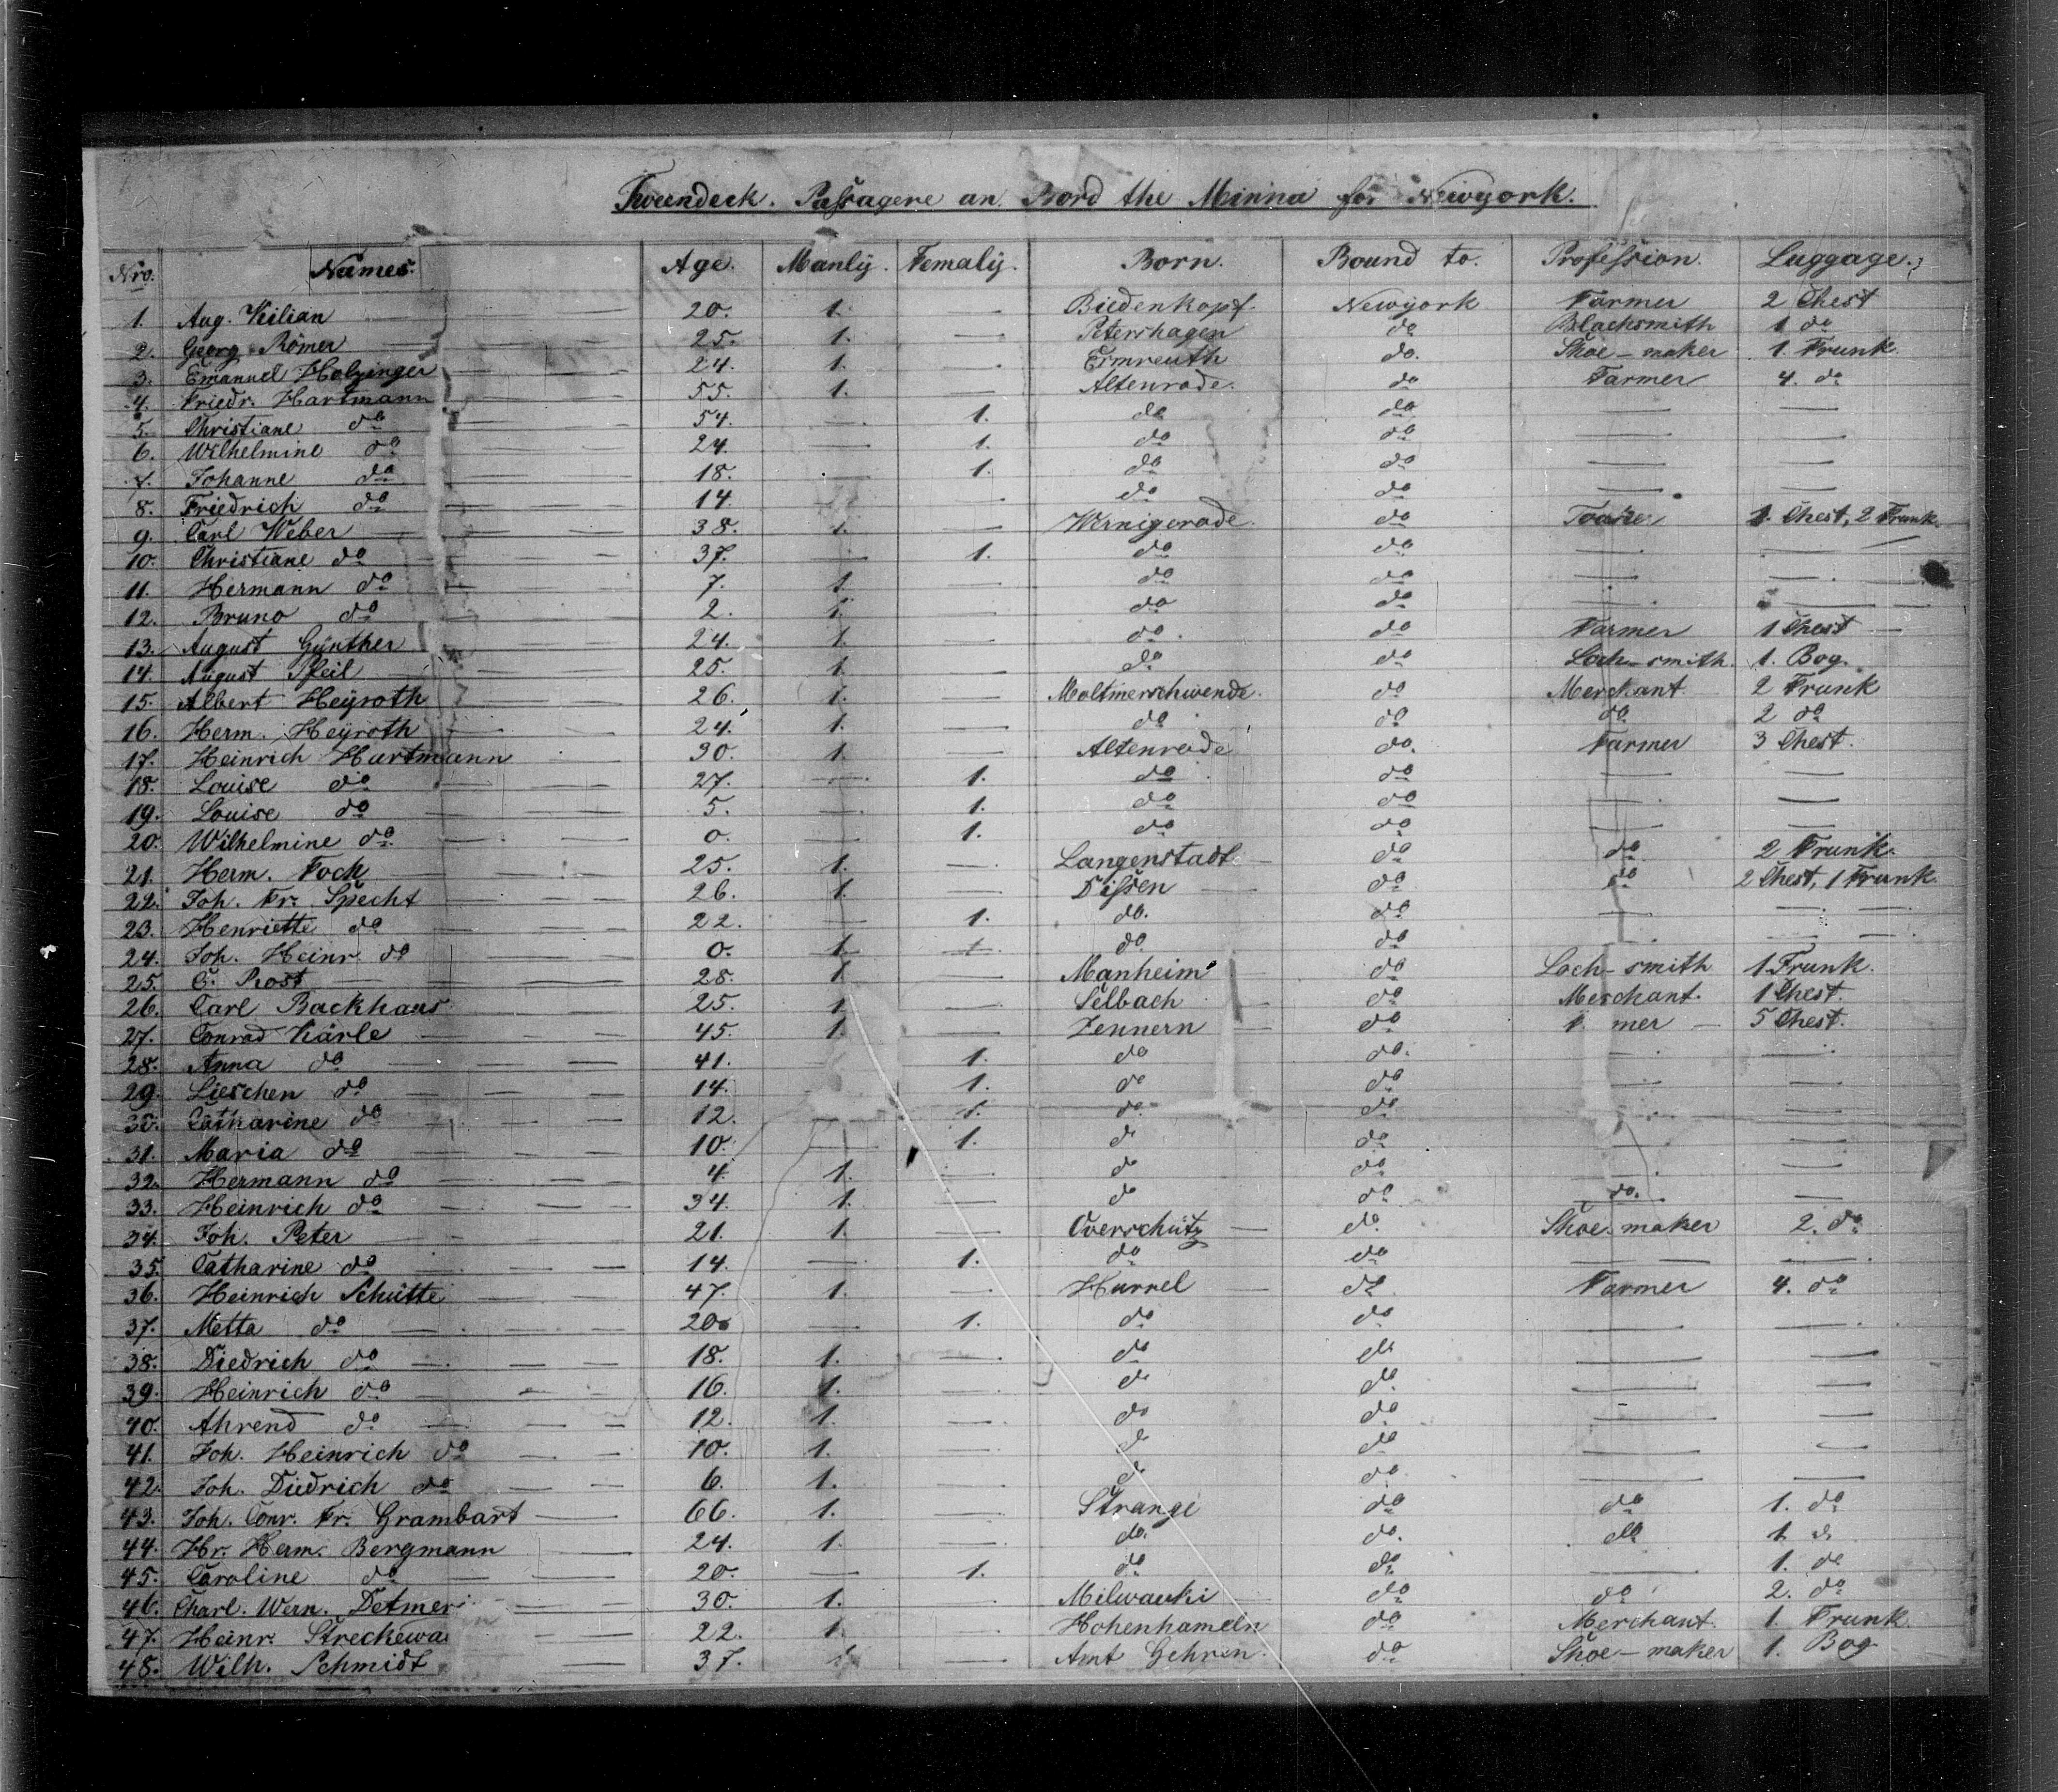 Tweendeck. Passagere an Bord the Minna for Newyork.
Nro. Names. Age. Manly. Femaly. Born. Bound to. Profession. Luggage.
1. Aug. Kilian 20. 1. — Biedenkopf. Newyork Farmer 2 Chest
2. Georg Römer 25. 1. — Petershagen do Blacksmith 1 do
3. Emanuel Holzinger 24. 1. — Ermreuth do. Shoe-maker 1. Trunk
4. Friedr. Hartmann 55. 1. Altenrode. do Farmer 4. do
5. Christiane do 54. — 1. do do — —
6. Wilhelmine do 24. — 1. do do — —
7. Johanne do 18. — 1. do do — —
8. Friedrich do 14. do do — —
9. Carl Weber 38. 1. — Wernigerode do 1. Chest, 2 Trunk.
10. Christiane do 37. — 1. do do — —
11. Hermann do 7. 1. — do do — —
12. Bruno do 2. 1. — do do — —
13. August Günther 24. 1. — do. do Farmer 1 Chest —
14. August Pfeil 25. 1. — do do Loch-smith. 1. Bog.
15. Albert Heyroth 26. 1. — Moltmerschwende. do Merchant 2 Trunk
16. Herm. Heyroth 24. 1. — do do do 2 do
17. Heinrich Hartmann 30. 1. — Altenrode do. Farmer 3 Chest.
18. Louise do 27. — 1. do do — —
19. Louise do 5. — 1. do do — —
20. Wilhelmine do. 0. — 1. do do — —
21. Herm. Fock 25. 1. — Langenstadt do do 2 Trunk.
22. Joh. Fr. Specht 26. 1. — Dissen do do 2 Chest, 1 Trunk.
23. Henriette do 22. — 1. do. do — —
24. Joh. Heinr. do 0. 1. do do — —
25. G. Rost 28. 1. — Manheim do Loch-smith 1 Trunk.
26. Carl Backhaus 25. 1. — Selbach do Merchant. 1 Chest.
27. Conrad Kärle 45. 1. — Zennern do mer — 5 Chest.
28. Anna do 41. 1. do do. — —
29. Lieschen do 14. 1. do do — —
30. Catharine do 12. — 1. do do — —
31. Maria do 10. — 1. do do — —
32. Hermann do 4. 1. — do do — —
33. Heinrich do 34. 1. — do do do. —
34. Joh. Peter 21. 1. — Overschütz do Shoe-maker 2. do
35. Catharine do 14. — 1. do do — —
36. Heinrich Schütte 47. 1. — Hurrel do Farmer 4. do
37. Metta do 20 — 1. do do — —
38. Diedrich do 18. 1. — do do — —
39. Heinrich do 16. 1. — do do — —
40. Ahrend do 12. 1. — do do — —
41. Joh. Heinrich do 10. 1. — do do — —
42. Joh. Diedrich do 6. 1. — do do — —
43. Joh. Conr. Fr. Grambart 66. 1. — Strange do do 1. do
44. Hr. Herm. Bergmann 24. 1. — do. do. do 1. do
45. Caroline do 20. — 1. do do — 1. do
46. Charl. Wern. Detmer 30. 1. Milwauki do do 2. do
47. Heinr. Streckewa 22. 1. Hohenhameln do Merchant. 1. Trunk
48. Wilh. Schmidt 37. 1. — Amt Gehren. do Shoe-maker 1. Bog